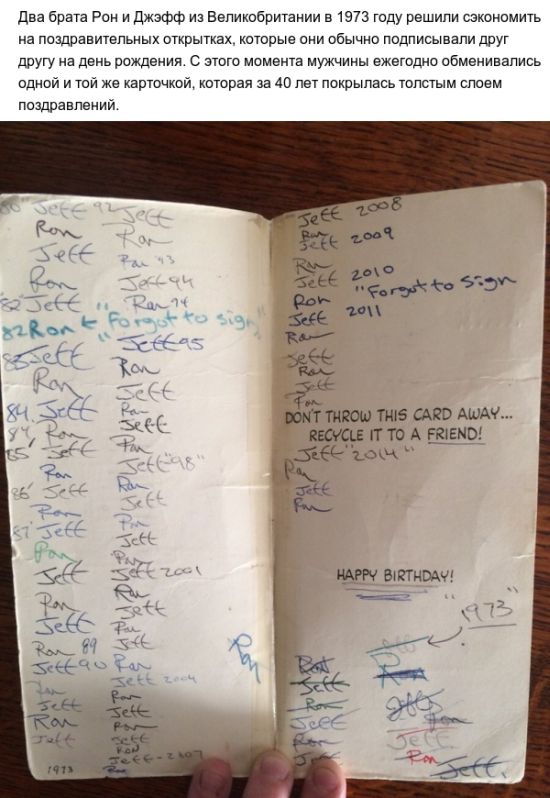 Два брата Рон и Джэфф из Великобритании в 1973 году решили сэкономить
на поздравительных открытках, которые они обычно подписывали друг
другу на день рождения. С этого момента мужчины ежегодно обменивались
одной и той же карточкой, которая за 40 лет покрылась толстым слоем
поздравлений.
80 Jeff
Ron
Jeff
Ron
"82" Jeff
82 Ron "Forgot to sign"
83 Jeff
Ron
84 Jeff
84 Ron
85' Jeff
Ron
86' Jeff
Ron
87' Jeff
Ron
Jeff
Ron
Jeff
Ron 89
Jeff 90
Ron
Jeff
Ron
Jeff
1973
92 Jeff
Ron
Ron 93
Jeff 94
Ron 94
Jeff 95
Ron
Jeff
Ron
Jeff
Ron
Jeff "98"
Ron
Jeff
Ron
Jeff
Ron
Jeff 2001
Ron
Jeff
Ron
Jeff
Ron
Jeff 2004
Ron
Jeff
Ron
Jeff
Ron
Jeff - 2007
Ron
Ron
Jeff 2008
Ron
Jeff 2009
Ron
Jeff 2010
Ron "Forgot to sign
Jeff 2011
Ron
Jeff
Ron
Jeff
Ron
DON'T THROW THIS CARD AWAY...
RECYCLE IT TO A FRIEND!
Jeff "2014"
Ron
Jeff
Ron
HAPPY BIRTHDAY!
"1973"
Ron
Jeff
Ron
Jeff
Ron
Jeff
Jeff
Ron
Jeff
Ron
Jeff.